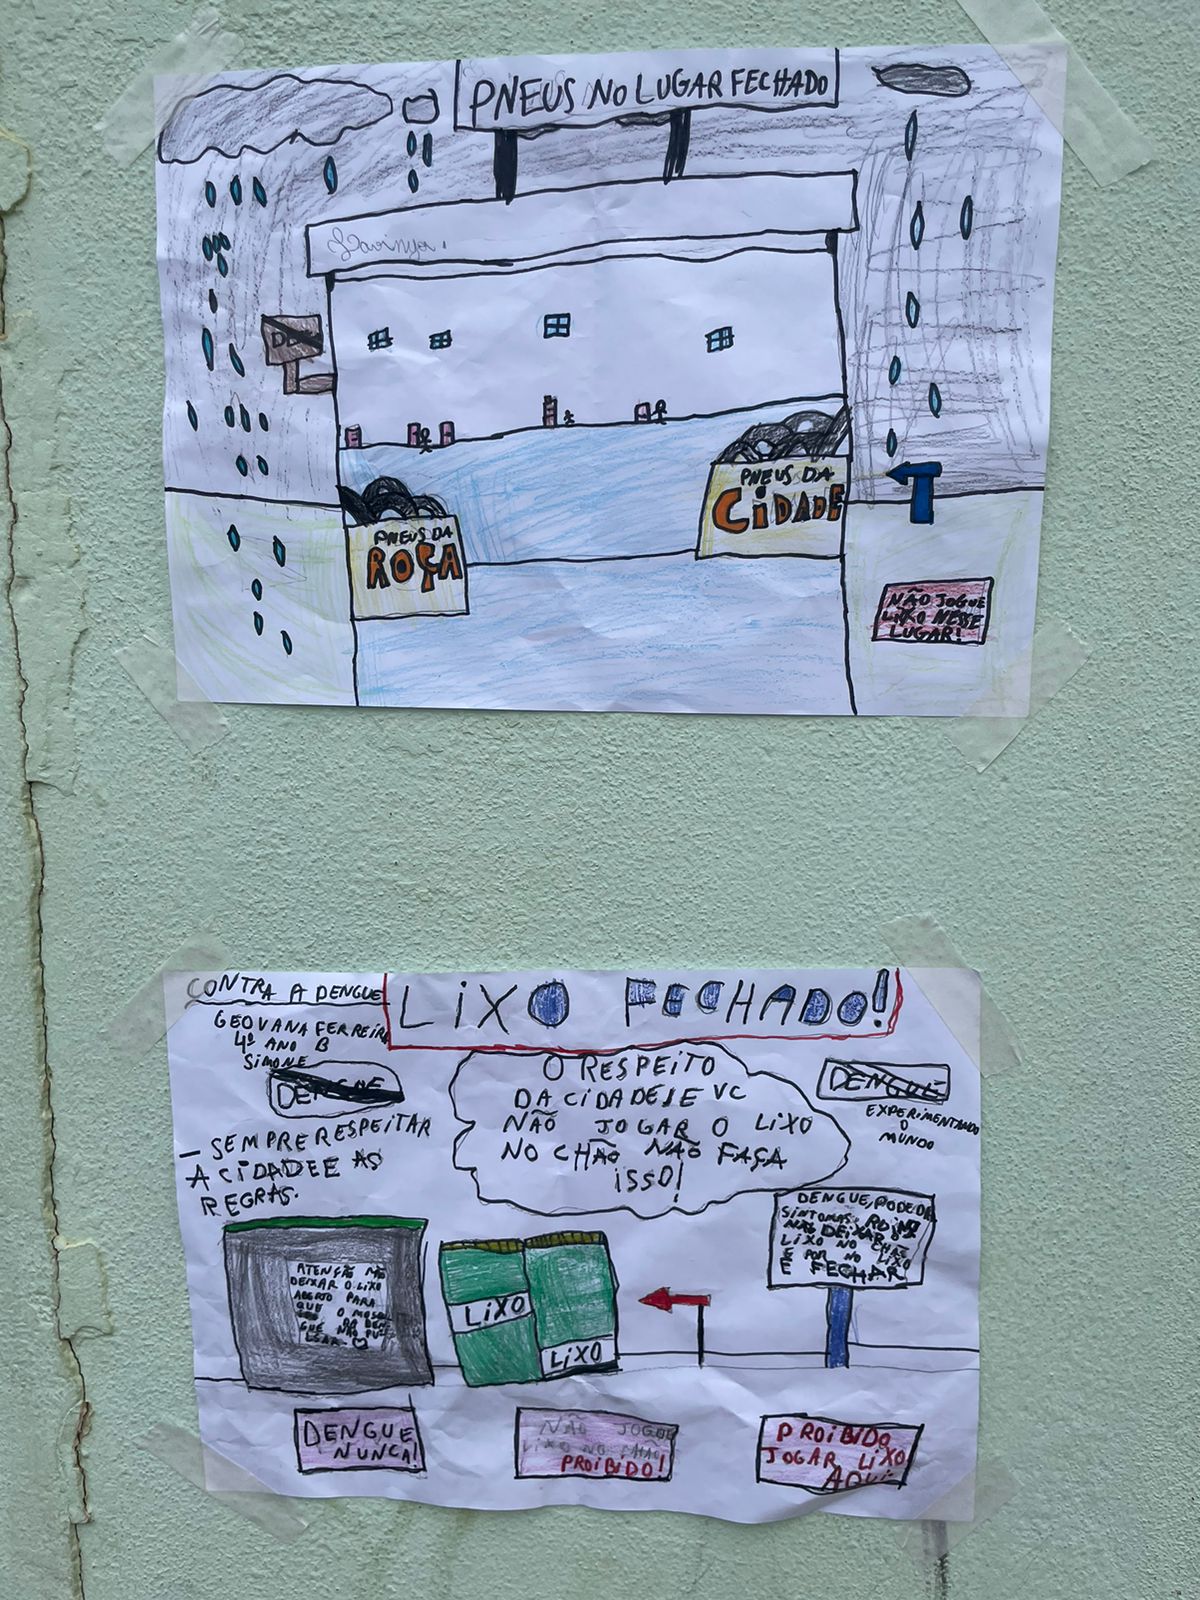 PNEUS NO LUGAR FECHADO
PNEUS DA
ROÇA
PNEUS DA
CIDADE
NÃO JOGUE
LIXO NESSE
LUGAR!
CONTRA A DENGUE
LIXO FECHADO!
GEOVANA FERREIRA
4º ANO B
SIMONE
DENGUE
- SEMPRE RESPEITAR
A CIDADE E AS
REGRAS.
O RESPEITO
DA CIDADE SE VC
NÃO JOGAR O LIXO
NO CHÃO NÃO FAÇA
ISSO!
DENGUE
EXPERIMENTANDO
O
MUNDO
DENGUE, PODE DE
SINTOMAS
NÃO DEIXAR O
LIXO NO CHÃO
E POR NO LIXO
E FECHAR
ATENÇÃO NÃO
DEIXAR O LIXO
ABERTO PARA
QUE O
LIXO
LIXO
DENGUE
NUNCA!
NÃO JOGUE
LIXO NO CHÃO
PROIBIDO!
PROIBIDO
JOGAR LIXO
AQUI